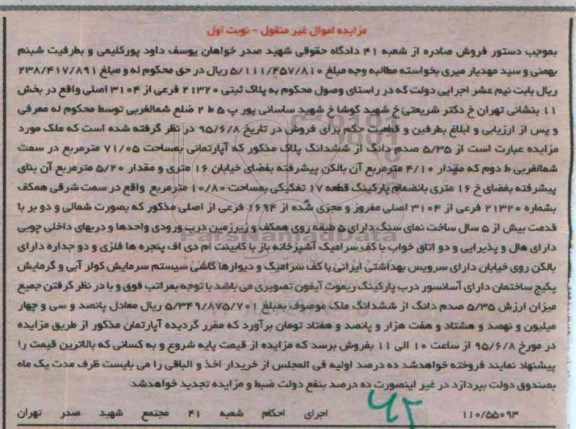 مزایده اموال غیر منقول - نوبت اول
بموجب دستور فروش صادره از شعبه ۴۱ دادگاه حقوقی شهید صدر خواهان یوسف داود پورکلیمی و بطرفیت شبنم
بهمنی و سید مهدیار میری بخواسته مطالبه وجه مبلغ ۵/۱۱۱/۴۵۷/۸۱۰ ریال در حق محکوم له و مبلغ ۲۳۸/۴۱۷/۸۹۱
ریال بابت نیم عشر اجرایی دولت که در راستای وصول محکوم به پلاک ثبتی ۲۱۳۲۰ فرعی از ۳۱۰۴ اصلی واقع در بخش
۱۱ بنشانی تهران خ دکتر شریعتی خ شهید کوشا خ شهید ساسانی پور پ ۵ ط ۲ ضلع شمالغربی توسط محکوم له معرفی
و پس از ارزیابی و ابلاغ بطرفین و قطعیت حکم برای فروش در تاریخ ۹۵/۶/۸ در نظر گرفته شده است که ملک مورد
مزایده عبارت است از ۵/۳۵ صدم دانگ از ششدانگ پلاک مذکور که آپارتمانی بمساحت ۷۱/۰۵ مترمربع در سمت
شمالغربی ط دوم که مقدار ۴/۱۰ مترمربع آن بالکن پیشرفته بفضای خیابان ۱۶ متری و مقدار ۵/۲۰ مترمربع آن بنای
پیشرفته بفضای خ ۱۶ متری بانضمام پارکینگ قطعه ۱۷ تفکیکی بمساحت ۱۰/۸۰ مترمربع واقع در سمت شرقی همکف
بشماره ۲۱۳۲۰ فرعی از ۳۱۰۴ اصلی مفروز و مجزی شده از ۱۶۹۴ فرعی از اصلی مذکور که بصورت شمالی و دو بر با
قدمت بیش از ۵ سال ساخت نمای سنگ دارای ۵ طبقه روی همکف و زیرزمین درب ورودی واحدها و دربهای داخلی چوبی
دارای هال و پذیرایی و دو اتاق خواب با کف سرامیک آشپزخانه باز با کابینت ام دی اف پنجره ها فلزی و دو جداره دارای
بالکن روی خیابان دارای سرویس بهداشتی ایرانی با کف سرامیک و دیوارها کاشی سیستم سرمایش کولر آبی و گرمایش
پکیج ساختمان دارای آسانسور درب پارکینگ ریموت آیفون تصویری می باشد با توجه بمراتب فوق و با در نظر گرفتن جمیع
میزان ارزش ۵/۳۵ صدم دانگ از ششدانگ ملک موصوف بمبلغ ۵/۳۴۹/۸۷۵/۷۰۱ ریال معادل پانصد و سی و چهار
میلیون و نهصد و هشتاد و هفت هزار و پانصد و هفتاد تومان برآورد که مقرر گردیده آپارتمان مذکور از طریق مزایده
در مورخ ۹۵/۶/۸ از ساعت ۱۰ الی ۱۱ بفروش برسد که مزایده از قیمت پایه شروع و به کسانی که بالاترین قیمت را
پیشنهاد نمایند فروخته خواهدشد ده درصد اولیه فی المجلس از خریدار اخذ و الباقی را می بایست ظرف مدت یک ماه
بصندوق دولت بپردازد در غیر اینصورت ده درصد بنفع دولت ضبط و مزایده تجدید خواهدشد
۱۱۰/۵۵۰۹۳ اجرای احکام شعبه ۴۱ مجتمع شهید صدر تهران